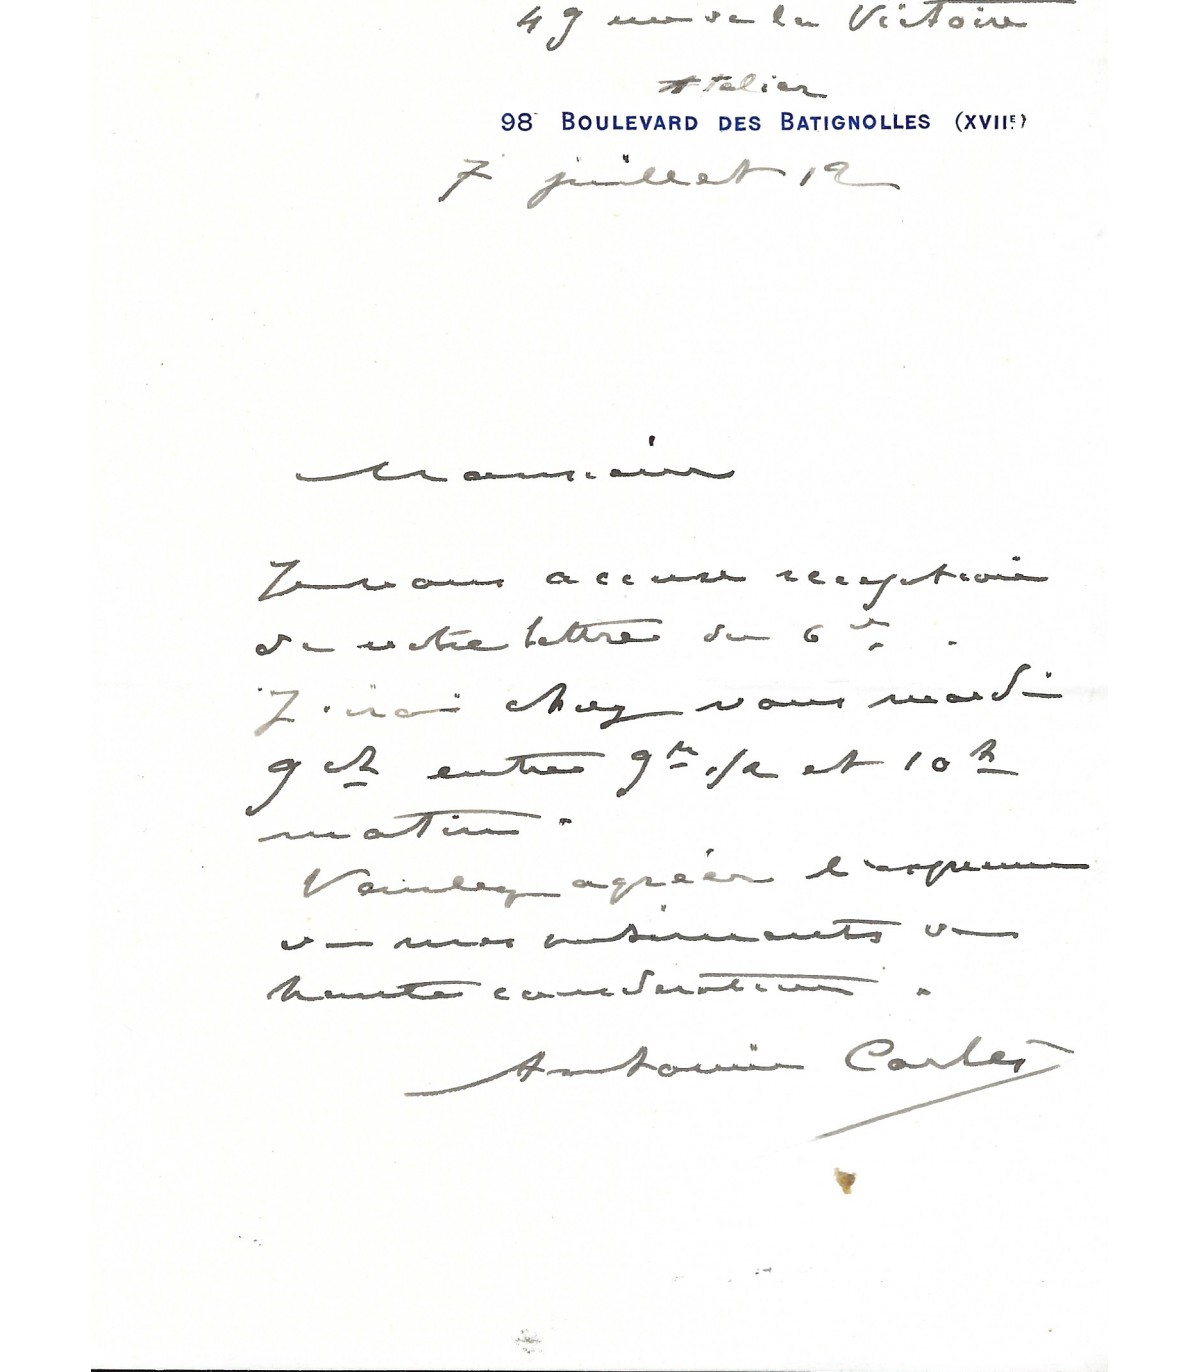 49 rue de la Victoire
Atelier
98 BOULEVARD DES BATIGNOLLES (XVIIE)
7 juillet 12
Monsieur
Je vous accuse reception
de votre lettre du 6 ct.
J'irai chez vous mardi
9 ct entre 9h 1/2 et 10 h
matin.
Veuillez agréer l'expression
de mes sentiments de
haute consideration.
Antonin Carlès